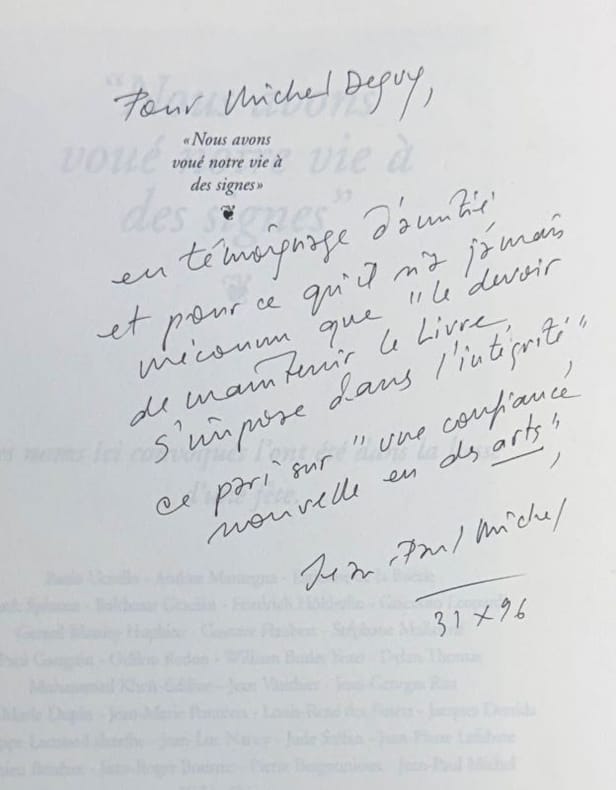 Pour Michel Deguy,
« Nous avons
voué notre vie à
des signes »
en témoignage d'amitié
et pour ce qu'il n'a jamais
méconnu que "le devoir
de maintenir le Livre,
s'impose dans l'intégrité"
ce pari sur "une confiance
nouvelle en des arts",
Jean-Paul Michel
31 X 96
"Nous avons
voué notre vie à
des signes"
noms ici convoqués l'ont été dans la
d'une fête.
Andrea Mantegna
Baltasar Gracián - Friedrich Hölderlin
Gerard Manley Hopkins - Gustave Flaubert - Stéphane
Paul Gauguin - Odilon Redon - William Butler Yeats - Dylan Thomas
Mohammed Khaïr-Eddine - Jean Vauthier
Jean-Marie Pontévia - Louis-René des Forêts - Jacques Derrida
Jean-Luc Nancy
Pierre Bergounioux - Jean-Paul Michel